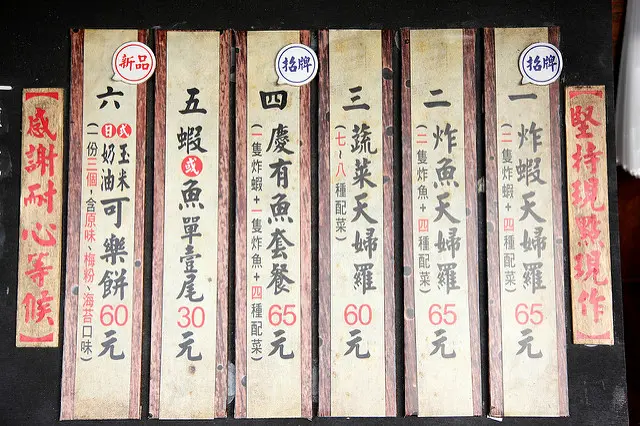 堅持現點現作
招牌
一 炸蝦天婦羅65元
(二隻炸蝦+四種配菜)
二 炸魚天婦羅65元
(二隻炸魚+四種配菜)
三 蔬菜天婦羅60元
(七~八種配菜)
招牌
四 慶有魚套餐65元
(一隻炸蝦+一隻炸魚+四種配菜)
五 蝦或魚單壹尾30元
新品
六 日式玉米奶油可樂餅60元
(一份三個,含原味、梅粉、海苔口味)
感謝耐心等候